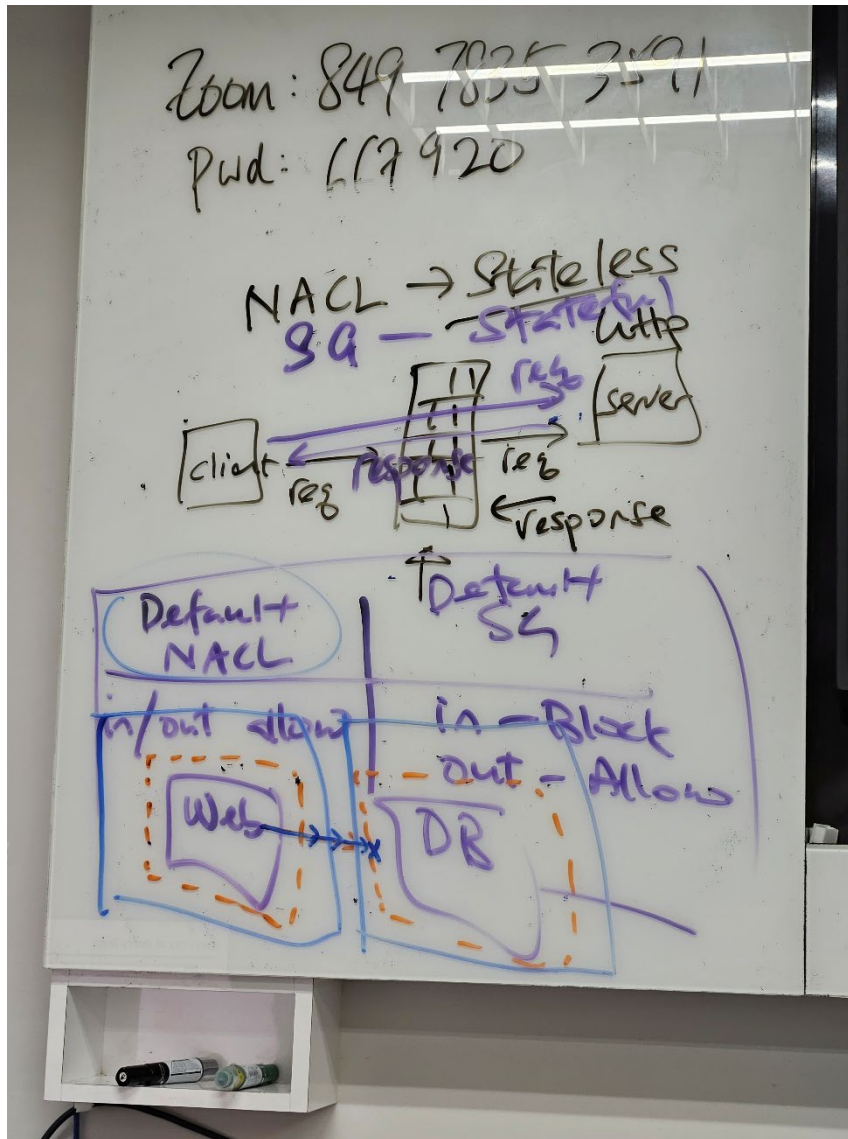 Zoom: 849 7835 3591
Pwd: 117920
NACL → Stateless
SG — Stateful
http
req
server
client
req
response
req
response
Default
NACL
Default
SG
in/out allow
in - Block
out - Allow
Web
DB